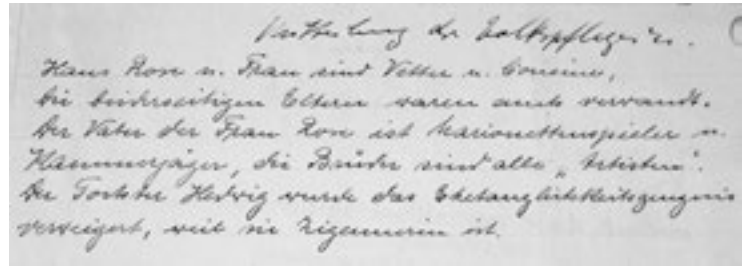 Mitteilung der Volkspflegerin.
Hans Rose u. Frau sind Vetter u. Cousine,
die beiderseitigen Eltern waren auch verwandt.
Der Vater der Frau Rose ist Marionettenspieler u.
Kammerjäger, die Brüder sind alle „Artisten“.
Der Tochter Hedwig wurde das Ehetauglichkeitszeugnis
verweigert, weil sie Zigeunerin ist.